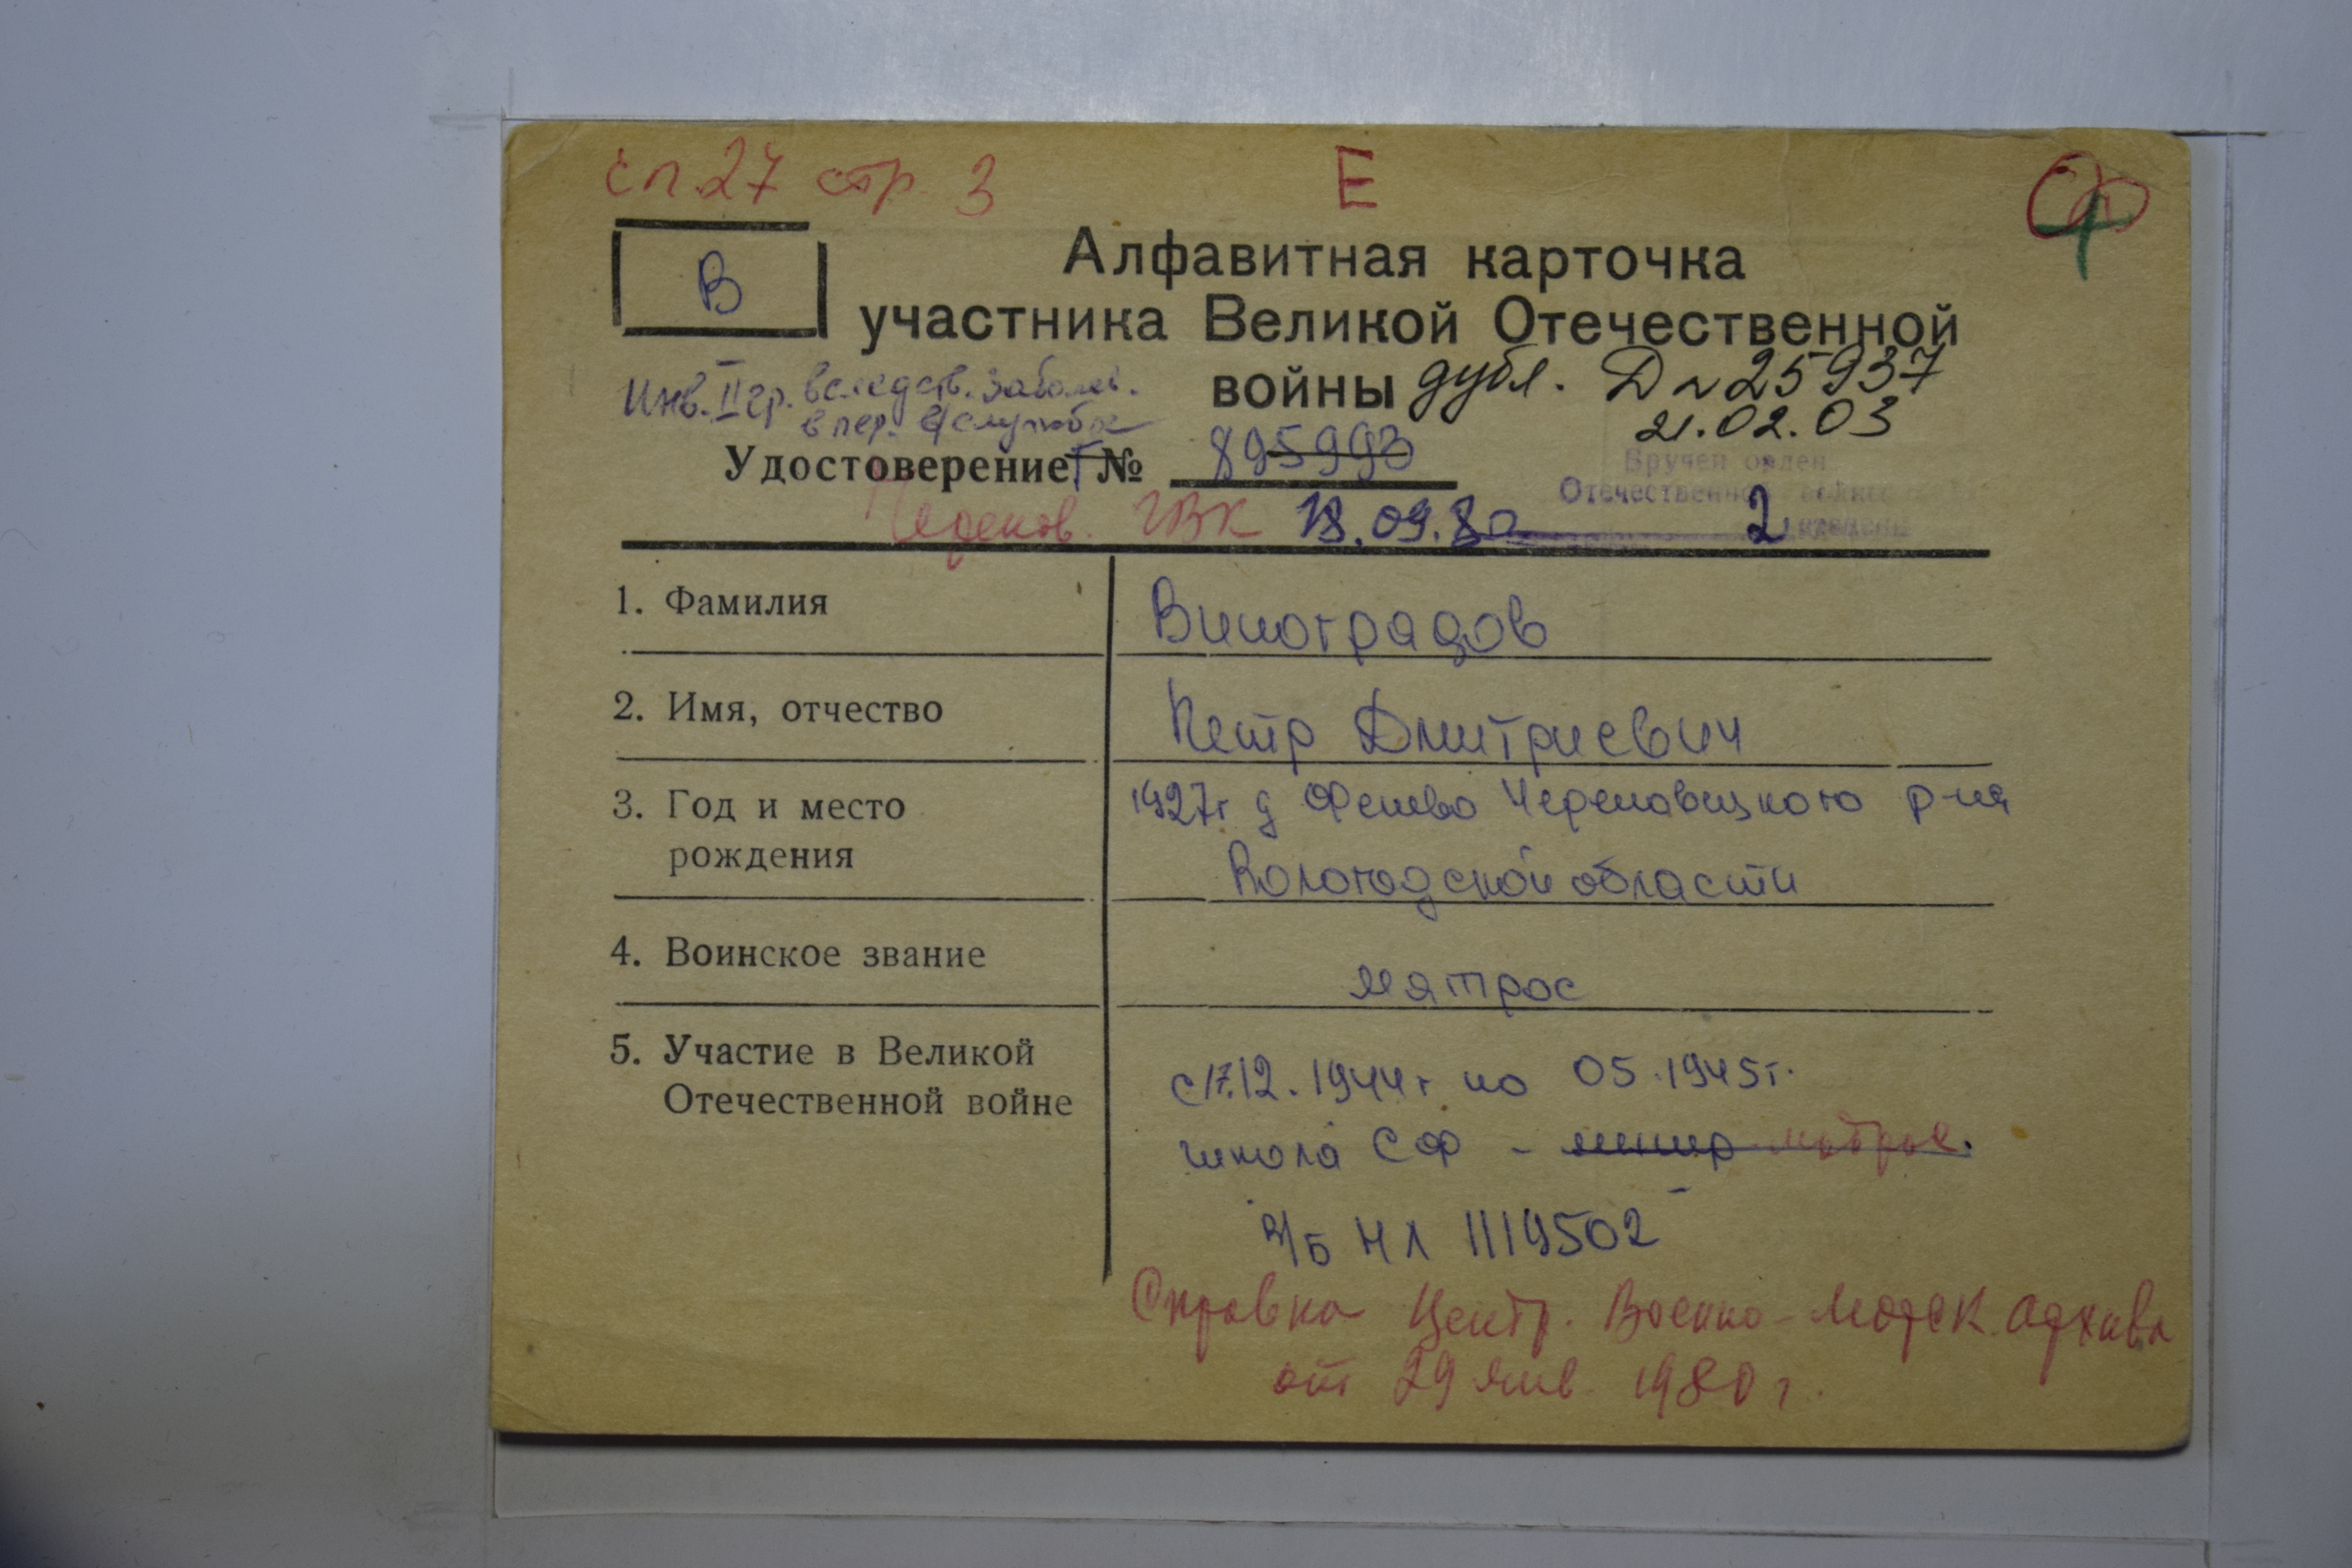 сп.27 стр. 3
Е
В
Алфавитная карточка
участника Великой Отечественной
войны
дубл. Д № 25937
21.02.03
Инв. II гр. вследств. заболев.
в пер. в/службы
Удостоверение Г № 895993
Вручен орден
Отечественной войны
2 степени
Черепов. ГВК 18.09.80
1. Фамилия Виноградов
2. Имя, отчество Петр Дмитриевич
3. Год и место 1927г д Фенево Череповецкого р-на
рождения Вологодской области
4. Воинское звание матрос
5. Участие в Великой
Отечественной войне
с 17.12.1944г по 05.1945г.
школа СФ - матрос.
в/б НЛ 1119502
Справка Центр. Военно-Морск. архива
от 29 янв 1980 г.